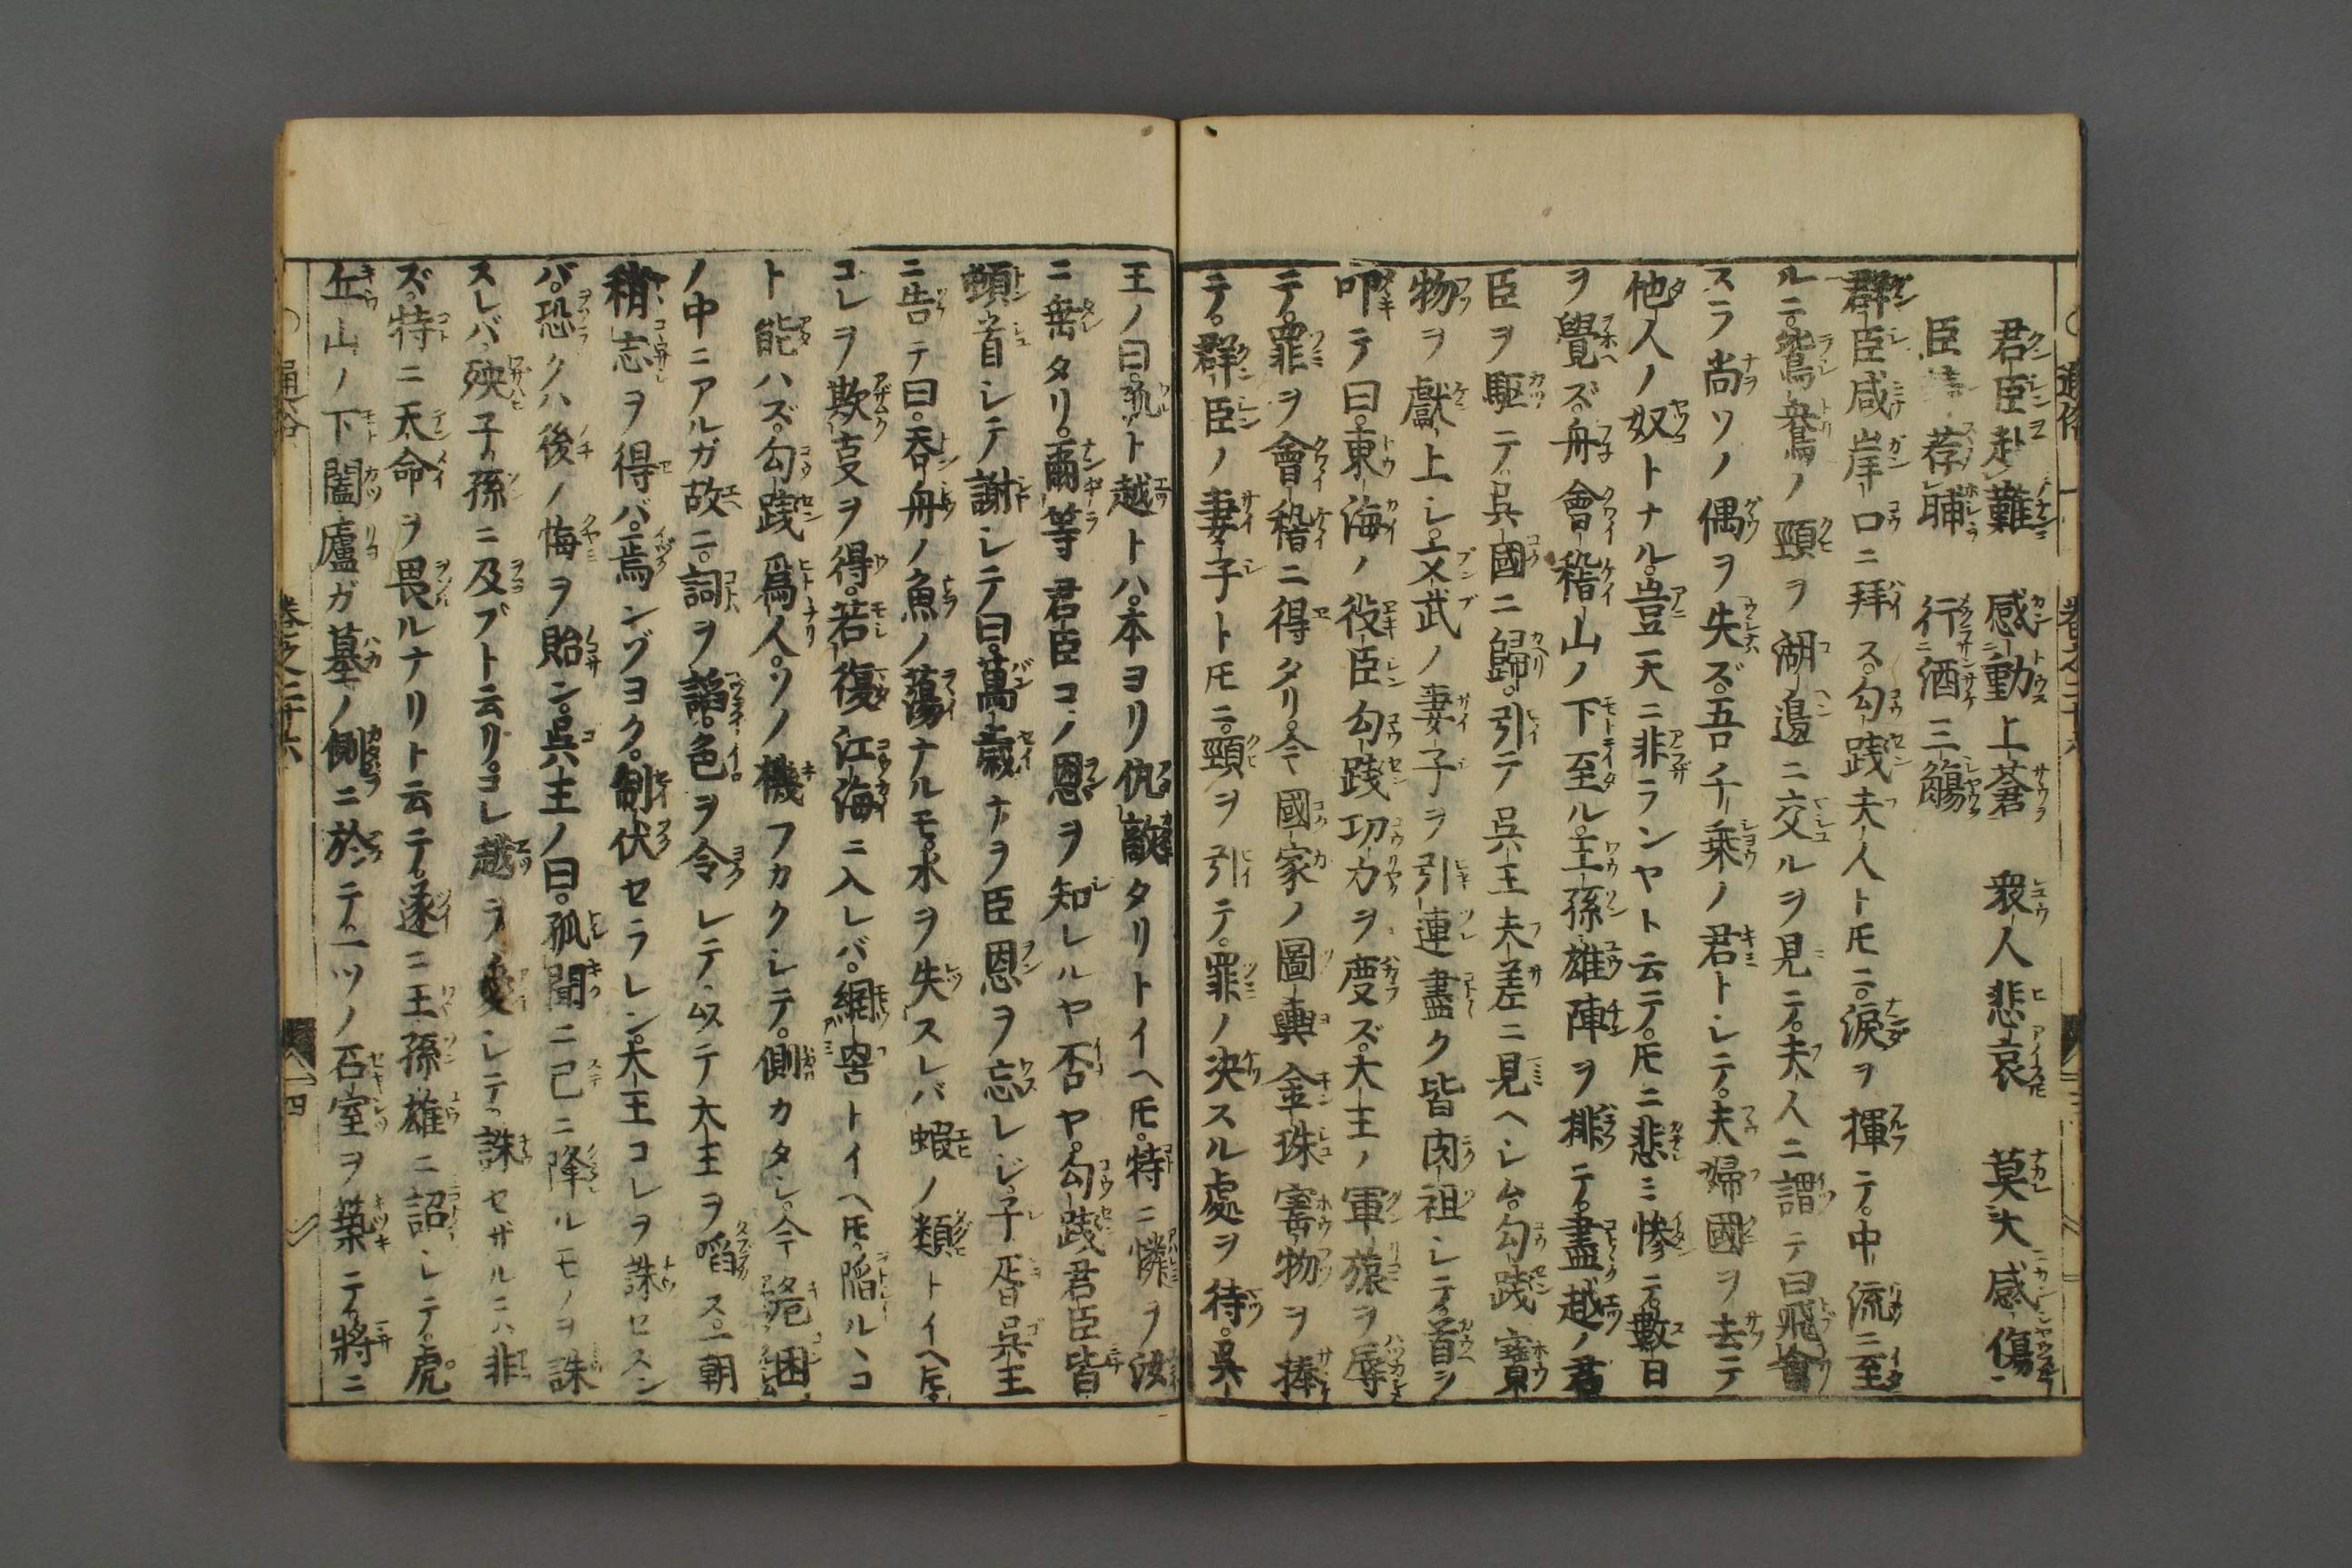 君臣赴難 感動上蒼 衆人悲哀 莫大感傷
臣 荐脯 行酒三觴
群臣咸岸口ニ拜ス。勾踐夫人トモニ。涙ヲ揮テ。中流ニ至
ルニ。鴛鴦ノ頸ヲ湖邉ニ交ルヲ見テ。夫人ニ謂テ曰飛禽
スラ尚ソノ偶ヲ失ズ。吾千乗ノ君トシテ。夫婦國ヲ去テ
他人ノ奴トナル。豈天ニ非ランヤト云テ。トモニ悲ミ惨テ。數日
ヲ覺ズ。舟會稽山ノ下至ル。王孫雄陣ヲ排テ。盡越ノ君
臣ヲ駆テ。呉國ニ歸。引テ呉王夫差ニ見ヘシム。勾踐寳
物ヲ獻上シ。文武ノ妻子ヲ引連盡ク皆肉袒シテ。首ヲ
叩テ曰。東海ノ役臣勾踐功力ヲ度ズ。大王ノ軍旅ヲ辱
テ。罪ヲ會稽ニ得タリ。今國家ノ圖輿金珠寳物ヲ捧
テ。群臣ノ妻子トモニ。頸ヲ引テ。罪ノ决スル處ヲ待。呉
王ノ曰。呉ト越トハ。本ヨリ仇敵タリトイヘトモ。特ニ憐ヲ汝
ニ垂タリ。爾等君臣コノ恩ヲ知ルヤ否ヤ。勾踐君臣皆
頓首シテ謝シテ曰。萬歳ナヲ臣恩ヲ忘レジ。子胥呉王
ニ告テ曰。呑舟ノ魚ノ蕩ナルモ。水ヲ失スレバ蝦ノ類トイヘトモ。
コレヲ欺支ヲ得。若復江海ニ入レバ。網罟トイヘトモ。陥ルヽコ
ト能ハズ。勾踐爲人。ソノ機フカクシテ。側カタシ。今危困
ノ中ニアルガ故ニ。詞ヲ謟。色ヲ令シテ以テ大王ヲ啗ス。一朝
稍志ヲ得バ。焉ンゾヨク。制伏セラレン。大王コレヲ誅セズン
バ。恐クハ後ノ悔ヲ貽ン。呉王ノ曰。孤聞ニ已ニ降ルモノヲ誅
スレバ。殃子孫ニ及ブト云リ。コレ越ヲ愛シテ。誅セザルニハ非
ズ。特ニ天命ヲ畏ルナリト云テ。遂ニ王孫雄ニ詔シテ。虎
丘山ノ下闔廬ガ墓ノ側ニ於テ。一ツノ石室ヲ築テ。將ニ
通俗 卷之二十六 四